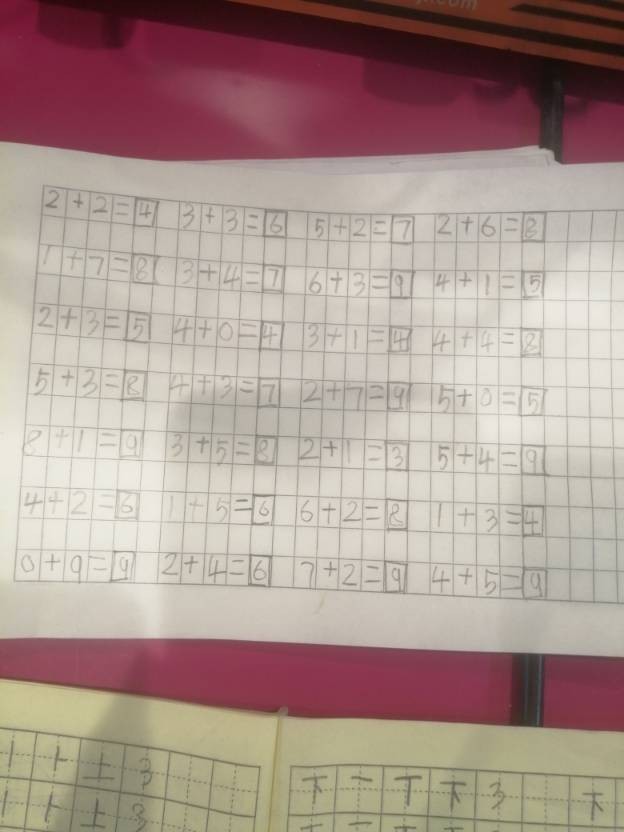 2+2=4 3+3=6 5+2=7 2+6=8
1+7=8 3+4=7 6+3=9 4+1=5
2+3=5 4+0=4 3+1=4 4+4=8
5+3=8 4+3=7 2+7=9 5+0=5
8+1=9 3+5=8 2+1=3 5+4=9
4+2=6 1+5=6 6+2=8 1+3=4
0+9=9 2+4=6 7+2=9 4+5=9